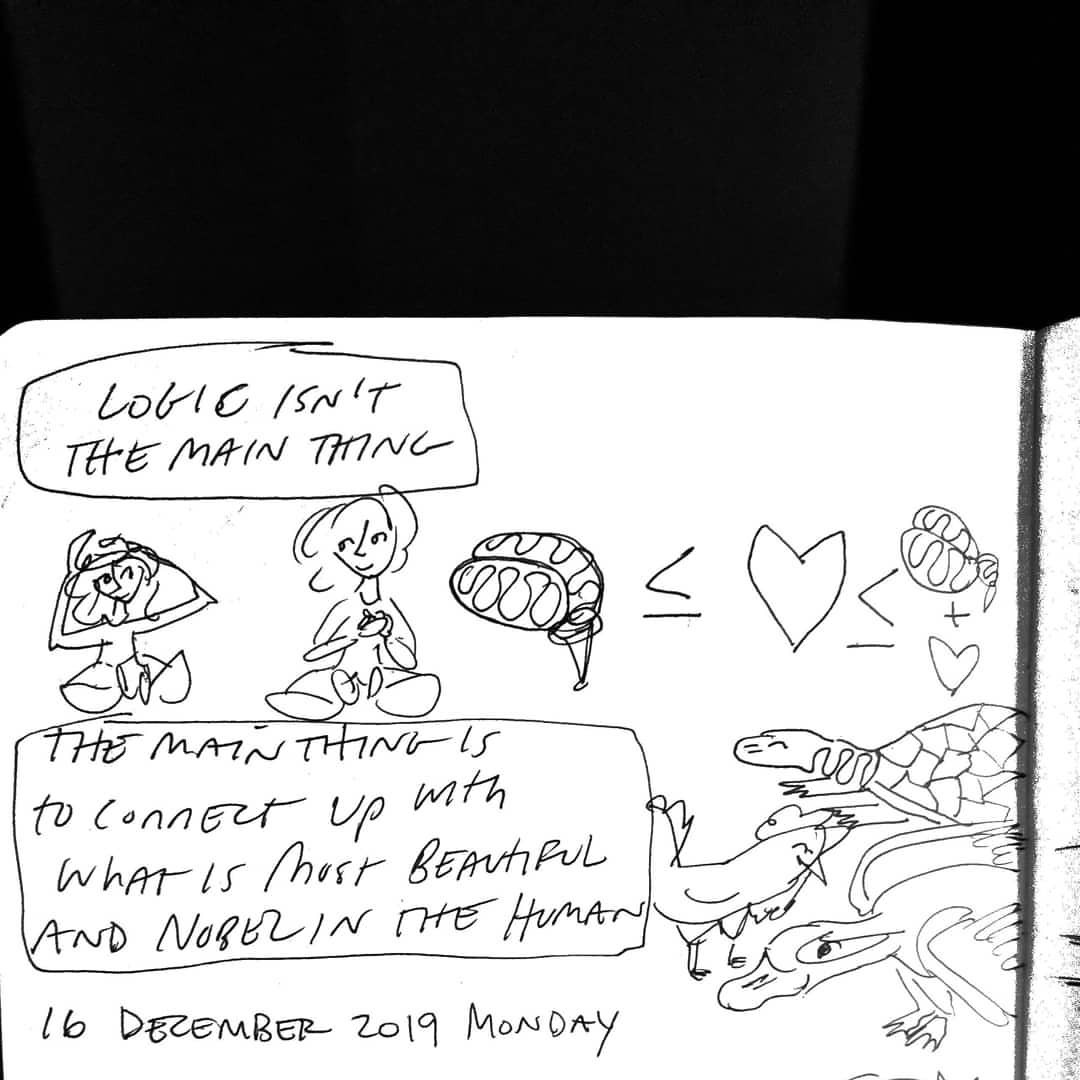 LOGIC ISN'T
THE MAIN THING
≤ ≤
+
THE MAIN THING IS
to connect up with
what is most BEAUTIFUL
AND NOBEL IN THE HUMAN
16 DEZEMBER 2019 MONDAY